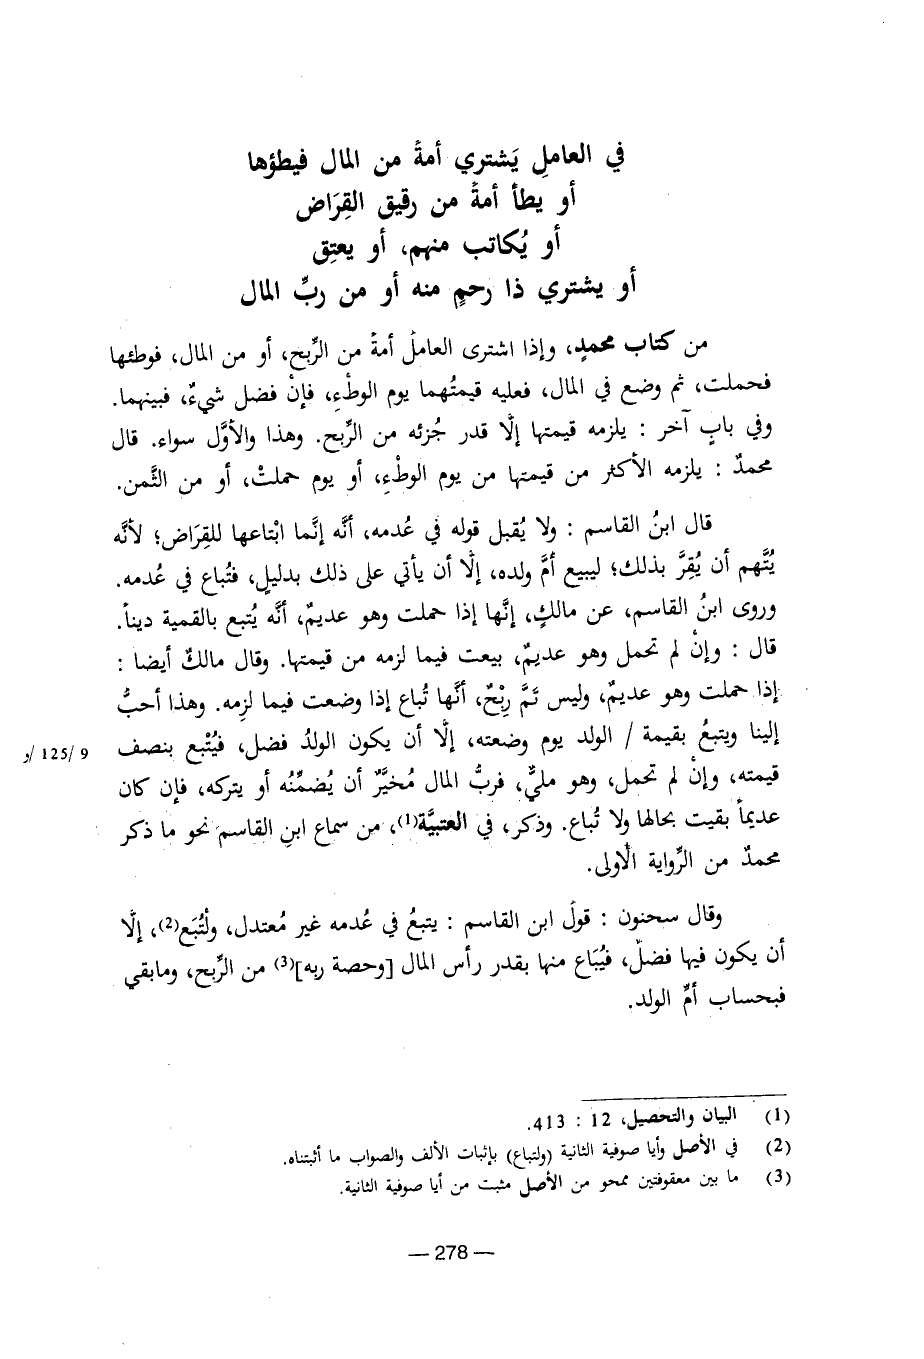 في العاملِ يَشتري أمةً من المال فيطؤها
أو يطأ أمةً من رقيق القِرَاض
أو يُكاتب منهم، أو يعتِق
أو يشتري ذا رحمٍ منه أو من ربِّ المال
من كتاب محمدٍ، وإذا اشترى العاملُ أمةً من الرِّبحِ، أو من المال، فوطئها
فحملت، ثم وضع في المال، فعليه قيمتُهما يوم الوطْءِ، فإنْ فضل شيءٌ، فبينهما.
وفي بابٍ آخر : يلزمه قيمتها إلَّا قدر جُزئه من الرِّبح. وهذا والأوَّل سواء. قال
محمدٌ : يلزمه الأكثر من قيمتها من يوم الوطْءِ، أو يوم حملتْ، أو من الثَّمن.
قال ابنُ القاسم : ولا يُقبل قوله في عُدمه، أنَّه إنَّما ابْتاعها للقِرَاض؛ لأنَّه
يُتَّهم أن يُقِرَّ بذلك؛ ليبيع أمَّ ولده، إلَّا أن يأتي على ذلك بدليلٍ، فتُباع في عُدمه.
وروى ابنُ القاسم، عن مالكٍ، إنَّها إذا حملت وهو عديمٌ، أنَّه يُتبع بالقمية ديناً.
قال : وإنْ لم تحمل وهو عديمٌ، بيعت فيما لزمه من قيمتها. وقال مالكٌ أيضا :
إذا حملت وهو عديمٌ، وليس ثَمَّ رِبْحٌ، أنَّها تُباع إذا وضعت فيما لزِمه. وهذا أحبُّ
إلينا ويتبعُ بقيمة / الولد يوم وضعته، إلَّا أن يكون الولدُ فضل، فيُتْبع بنصف
9 /125/و
قيمته، وإنْ لم تحمل، وهو مليٌّ، فربُّ المال مُخيَّرٌ أن يُضمِّنُه أو يتركه، فإن كان
عديماً بقيت بحالها ولا تُباع. وذكر، في العتبيَّة(1)، من سماع ابنِ القاسم نحو ما ذكر
محمدٌ من الرِّواية الأولى.
وقال سحنون : قولُ ابن القاسم : يتبعُ في عُدمه غير مُعتدل، ولْتُبَع(2)، إلَّا
أن يكون فيها فضلٌ، فيُبَاع منها بقدر رأس المال [وحصة ربه](3) من الرِّبح، ومابقي
فبحساب أمِّ الولد.
(1) البيان والتحصيل، 12 : 413.
(2) في الأصل وأيا صوفية الثانية (ولتباع) بإثبات الألف والصواب ما أثبتناه.
(3) ما بين معقوفتين ممحو من الأصل مثبت من أيا صوفية الثانية.
— 278 —